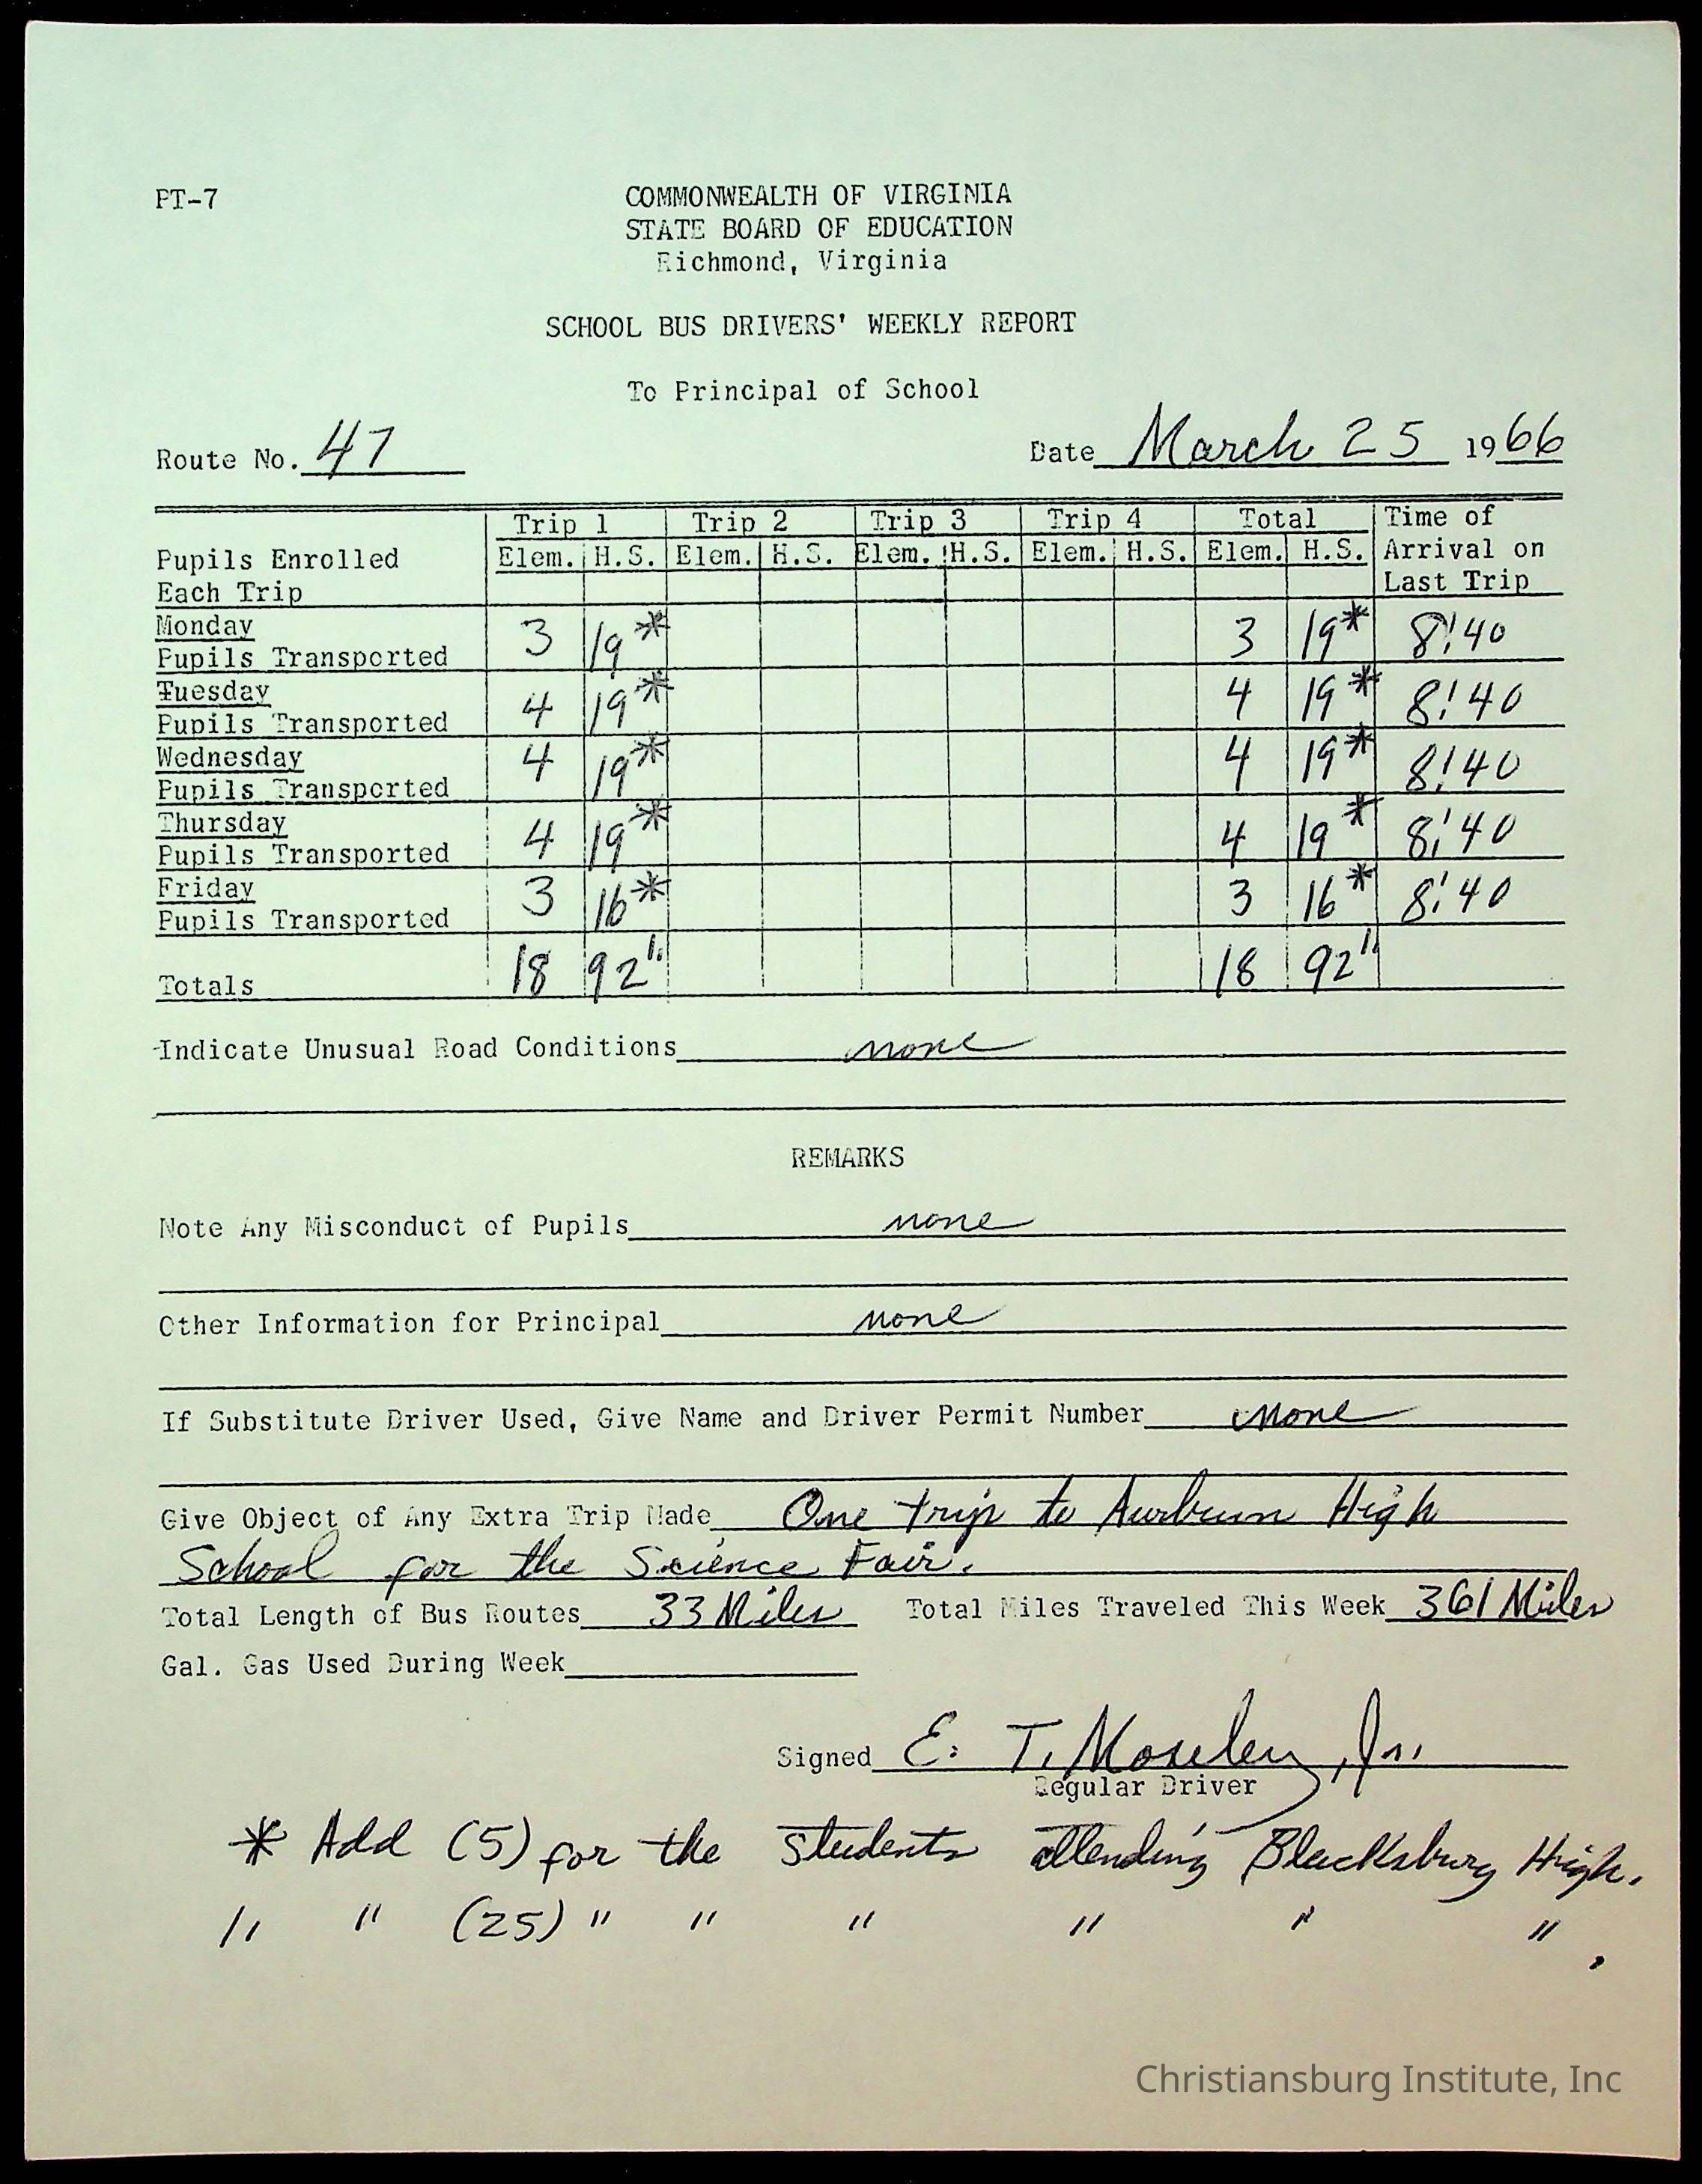 PT-7
COMMONWEALTH OF VIRGINIA
STATE BOARD OF EDUCATION
Richmond, Virginia
SCHOOL BUS DRIVERS' WEEKLY REPORT
To Principal of School
Route No. 47 Date March 25 1966
Trip 1 Trip 2 Trip 3 Trip 4 Total Time of
Pupils Enrolled Elem. H.S. Elem. H.S. Elem. H.S. Elem. H.S. Elem. H.S. Arrival on
Each Trip Last Trip
Monday
Pupils Transported 3 19* 3 19* 8:40
Tuesday
Pupils Transported 4 19* 4 19* 8:40
Wednesday
Pupils Transported 4 19* 4 19* 8:40
Thursday
Pupils Transported 4 19* 4 19* 8:40
Friday
Pupils Transported 3 16* 3 16* 8:40
Totals 18 92" 18 92"
Indicate Unusual Road Conditions none
REMARKS
Note Any Misconduct of Pupils none
Other Information for Principal none
If Substitute Driver Used, Give Name and Driver Permit Number none
Give Object of Any Extra Trip Made One trip to Auburn High
School for the Science Fair.
Total Length of Bus Routes 33 Miles Total Miles Traveled This Week 361 Miles
Gal. Gas Used During Week
Signed E. T. Moseley, Jr.
Regular Driver
* Add (5) for the students attending Blacksburg High.
" " (25) " " " " " " .
Christiansburg Institute, Inc